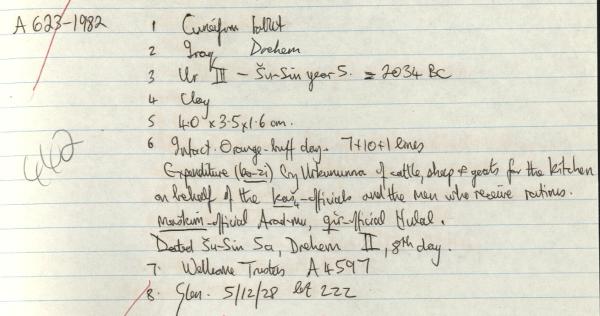 A 623-1982
1 Cuneiform tablet
2 Iraq Drehem
3 Ur III – Šu-Sin year 5. = 2034 BC
4 Clay
5 4.0 x 3.5 x 1.6 cm.
6 Intact. Orange-buff clay. 7+10+1 lines
Expenditure (ba-zi) by Urkununna of cattle, sheep & goats for the kitchen
on behalf of the kaš₄-officials and the men who receive rations.
maškim-official Arad-mu, official Hulal.
Dated Šu-Sin 5a, Drehem II, 8th day.
7. Wellcome Trustees A 4597
8. Glen. 5/12/28 lot 222
442